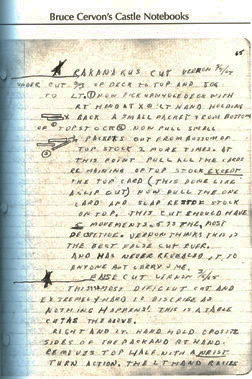 Bruce Cervon's Castle Notebooks
65
BAKANAKUS CUT VERNON
UNDER CUT 2/3 OF DECK TO TOP AND JOG
TO LT. ① NOW PICK UP WHOLE DECK WITH
RT HAND AT X @ LT HAND HOLDING
X BACK A SMALL PACKET FROM BOTTOM
OF TOP STOCK ② NOW PULL SMALL
PACKETS OUT FROM BOTTOM OF
TOP STOCK 2 MORE TIMES. AT
THIS POINT PULL ALL THE CARDS
REMAINING OF TOP STOCK EXCEPT
THE TOP CARD (THIS DONE LIKE
A SLIP CUT) NOW PULL THE ONE
CARD AND SLAP REST STOCK
ON TOP. THIS CUT SHOULD HAVE
5 MOVEMENTS. IT IS THE MOST
DECEPTIVE. VERNON THINKS THIS IS
THE BEST FALSE CUT EVER.
AND HAS NEVER REVEALED IT TO
ANYONE BUT LARRY & ME.
FALSE CUT VERNON
THIS MOST DIFFICULT CUT AND
EXTREMELY HARD TO DISCRIBE AS
NOTHING HAPPENS! THIS IS A TABLE
CUT AS THE ABOVE.
RIGHT AND LT. HAND HOLD OPPOSITE
SIDES OF THE PACK AND RT HAND.
REMOVES TOP HALF WITH A WRIST
TURN ACTION. THE LT HAND RAISES